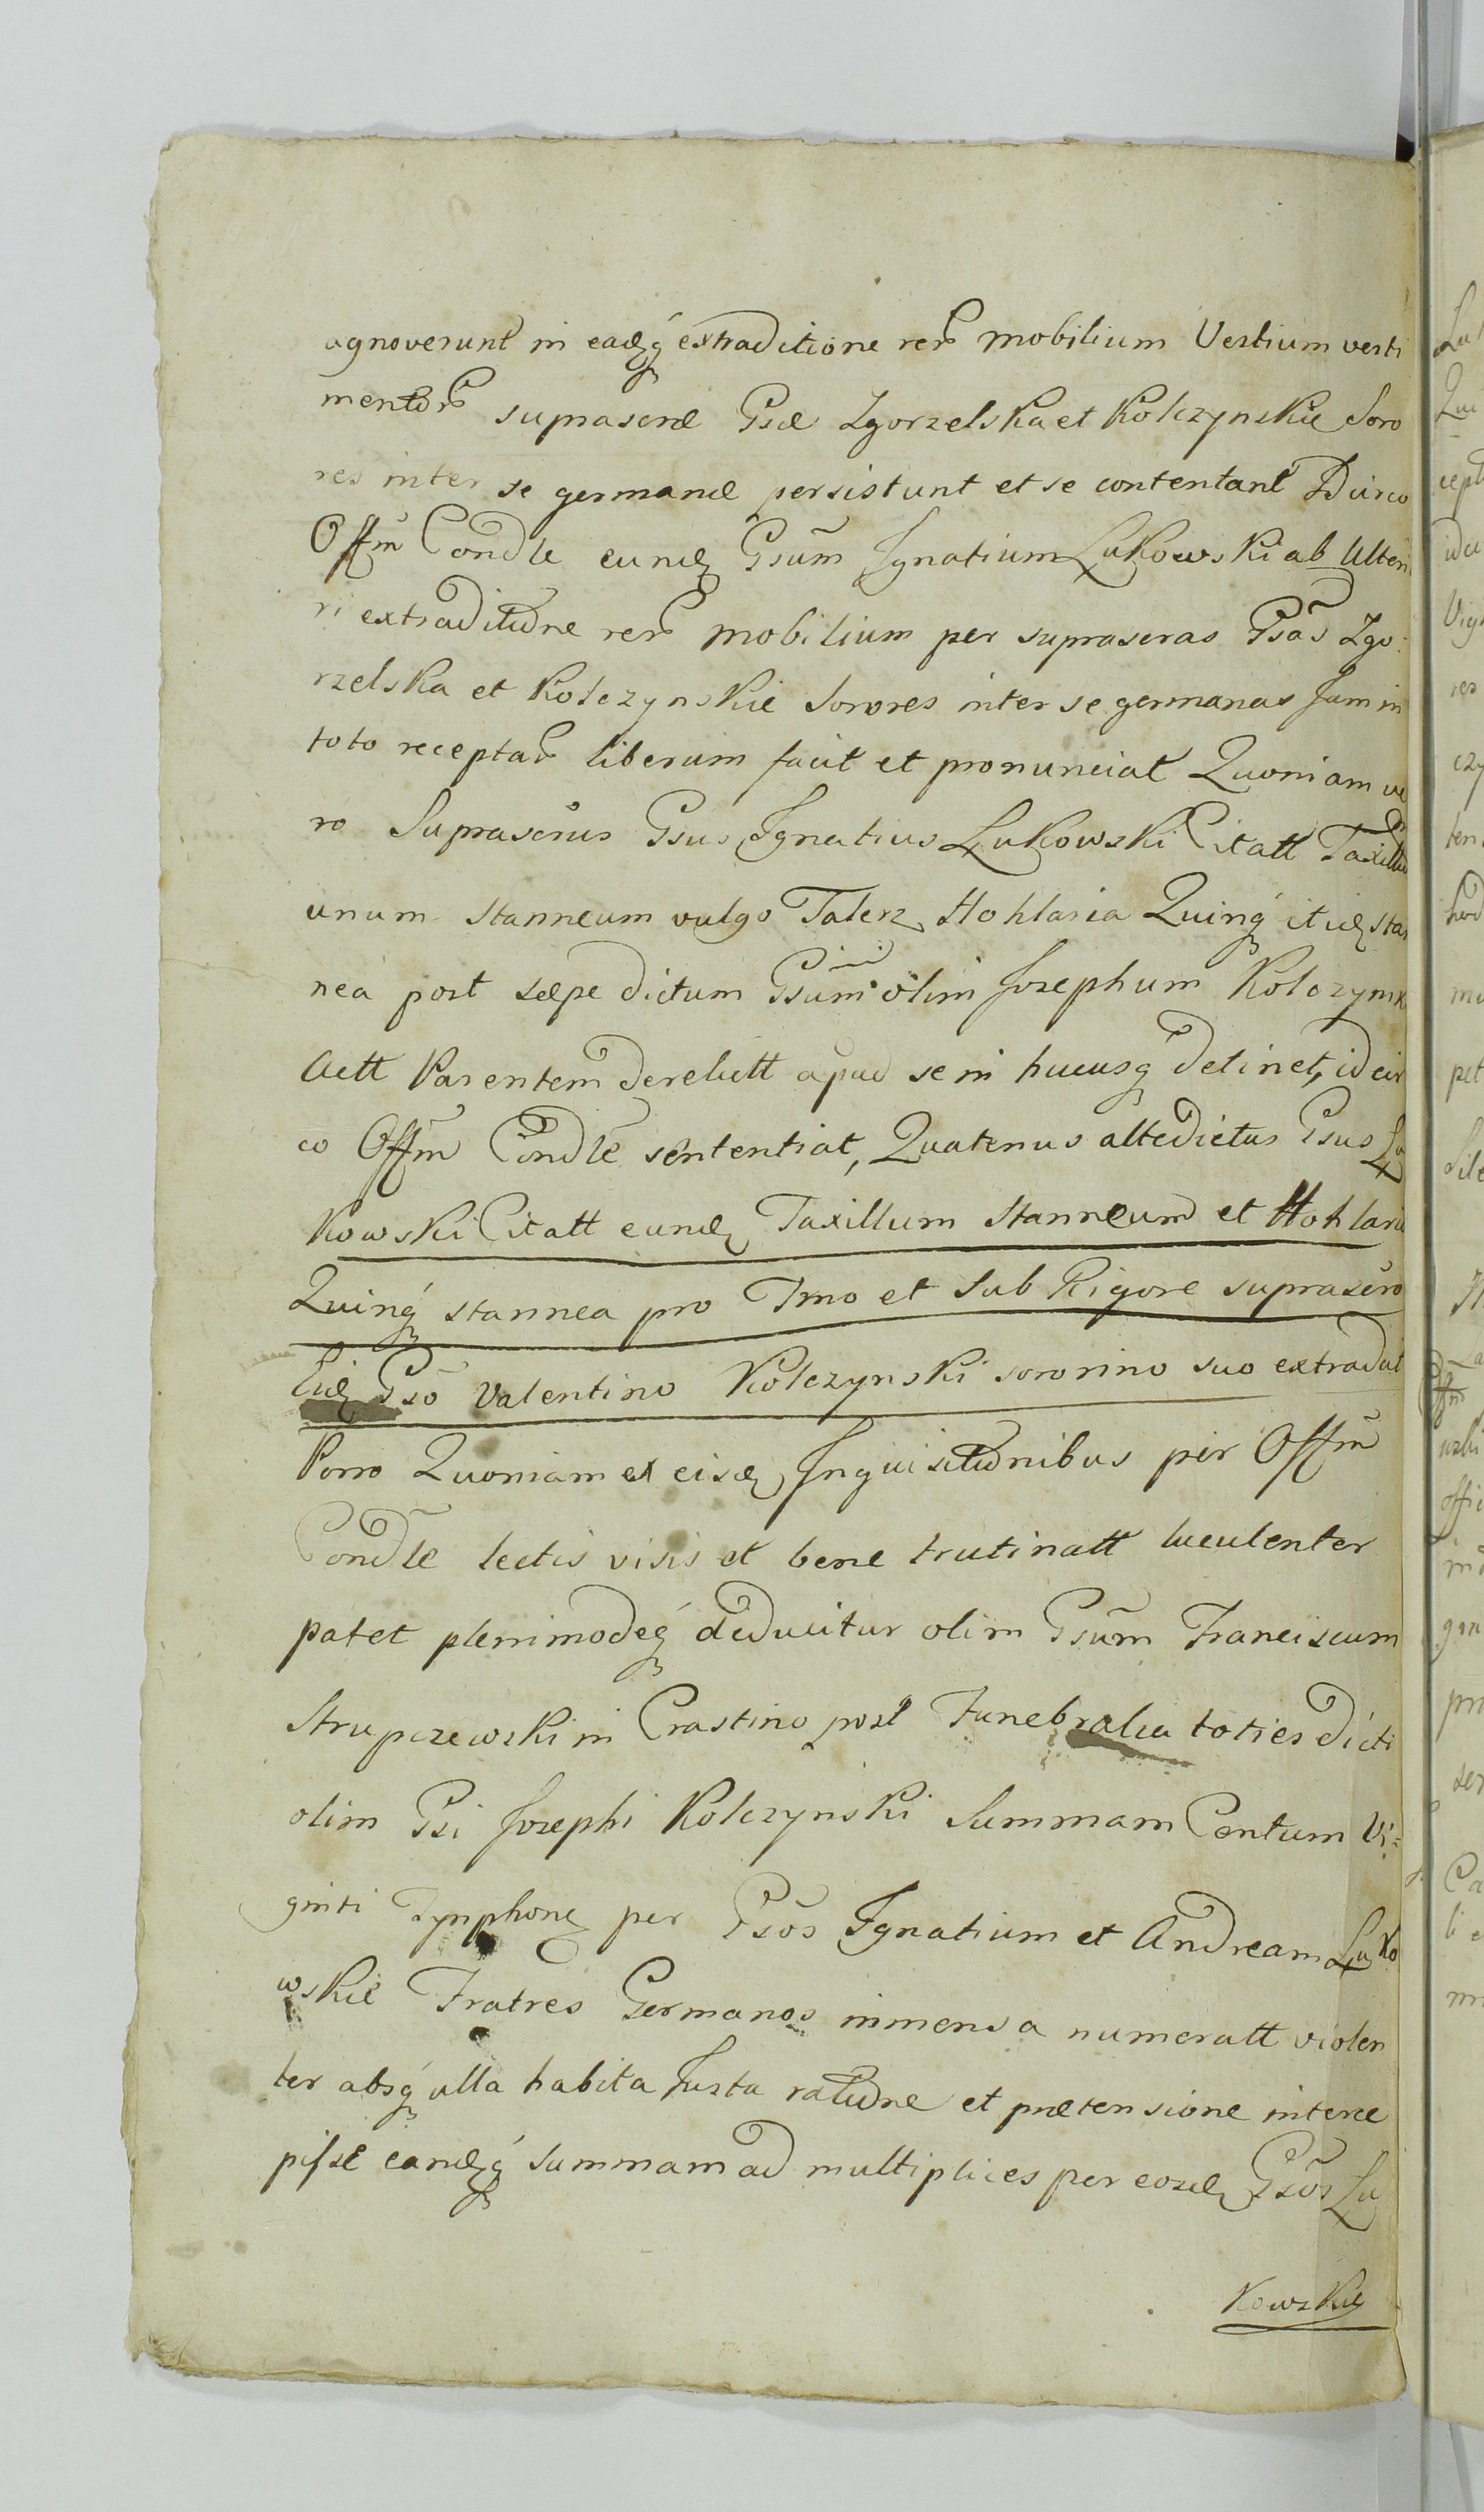 agnoverunt in eadq́ extraditione rer̃ mobilium Vestium vesti
mentor̃ suprascrae Gsae Zgorzelska et Kolczynskie Soro
res inter se germanae persistunt et se contentant Idcirco
Offm̃ Condle eund Gsum̃ Ignatium Lukowski ab Ulteri
ri extraditione rer̃ mobilium per suprascras Gsãs Zgo
rzelska et Kolczynskie Sorores inter se germanas Jam in
toto receptar̃ liberum facit et pronunciat Quoniam ve
ro Suprascrus Gsus Ignatius Lukowski Citatt Taxillum
unum stanneum vulgo Talerz Hohlaria Quinq́ itid stan
nea post saepe dictum Gsum̃ olim Josephum Kolczynski
Actt Parentem derelictt apud se in hucusq́ detinet, idcir
co Offm̃ Condle sententiat, Quatenus attedictus Gsus Lu
kowski Citatt eund Taxillum Stanneum et Hohlaria
Quinq́ stannea pro Tmo et Sub Rigore suprascro
Eid Gso Valentino Kolczynski sororino suo extradat
Porro Quoniam ex eisd Inquisitionibus per Offm̃
Condle lectis visis et bene trutinatt luculenter
patet plenimodeq́ deducitur olim Gsum̃ Franciscum
Strupczewski in Crastino post Funebralia toties dicti
olim Gsi Josephi Kolczynski Summam Centum Vi=
ginti Tynphone per Gsõs Ignatium et Andream Luko
wskie Fratres Germanos in mensa numeratt violen
ter absq́ ulla habita Justa ratione et praetensione interce
pisse eandq́ summam ad multiplices per eosd Gsõs Lu
kowskie